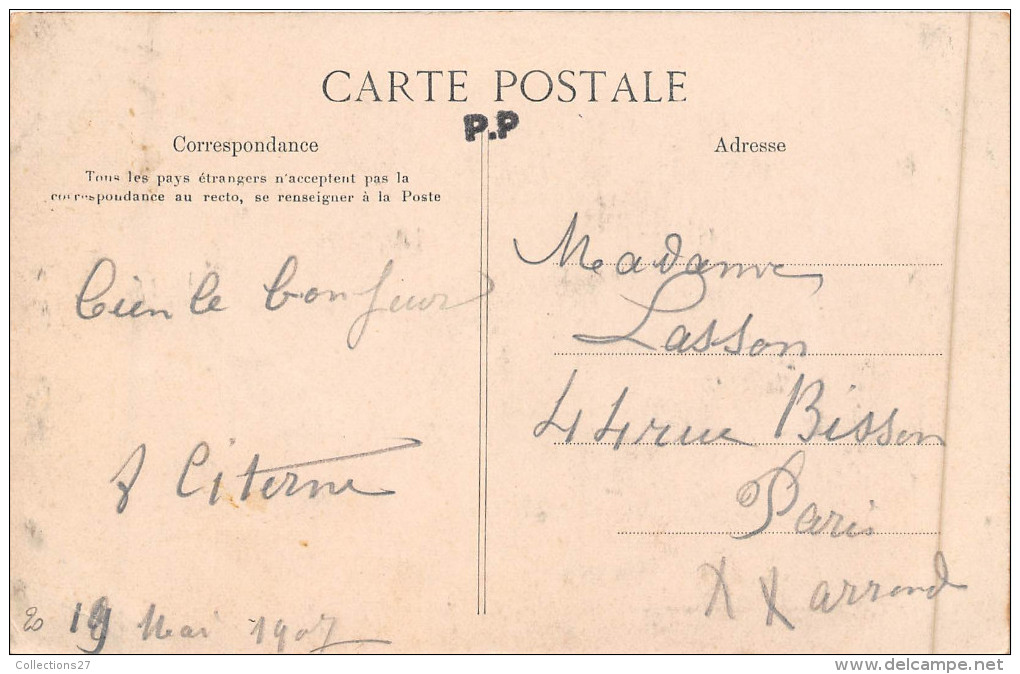 CARTE POSTALE
P.P
Correspondance
Tous les pays étrangers n'acceptent pas la
correspondance au recto, se renseigner à la Poste
bien le bonjour
Citerne
19 Mai 1907
20
Adresse
Madame
Lasson
44 rue Bisson
Paris
XX arrond
Collections27
www.delcampe.net